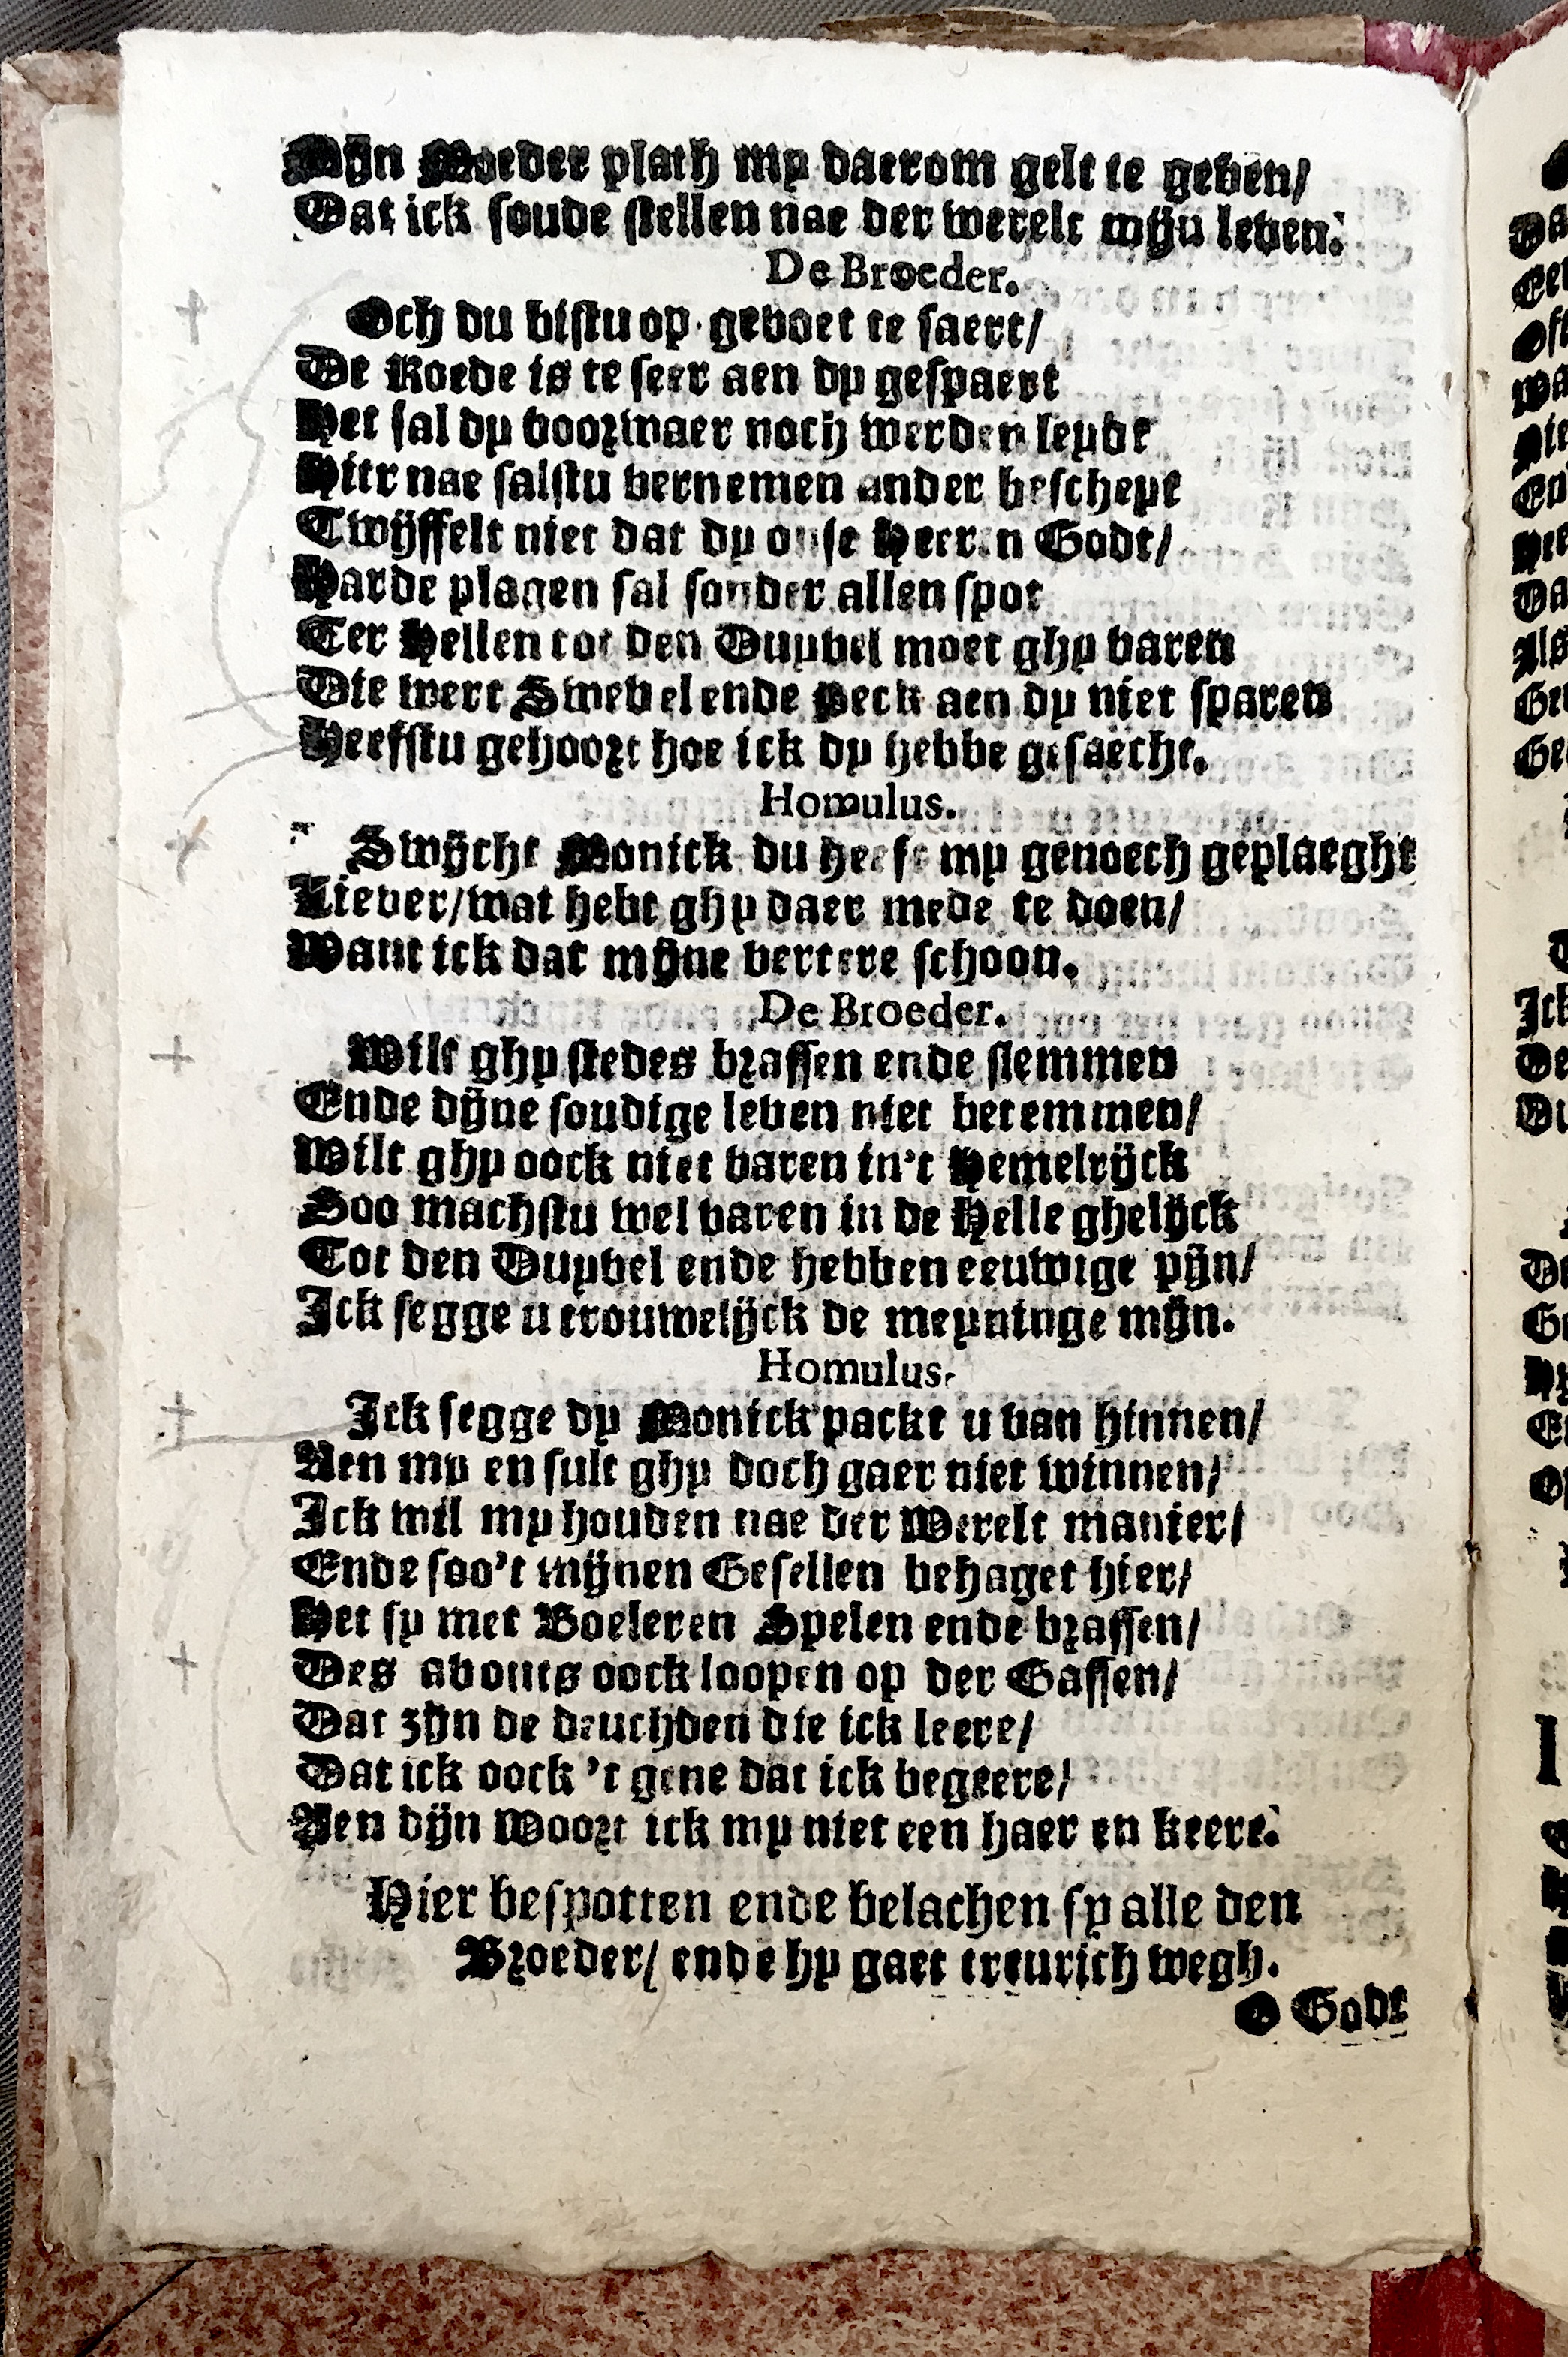 Mijn Moeder plach my daerom gelt te geven/
Dat ick soude stellen nae der werelt mijn leven.
De Broeder.
Och du bistu op gevoet te saert/
De Roede is te seer aen dy gespaert
Het sal dy voorwaer noch werden leydt
Hier nae salstu vernemen ander bescheyt
Twijffelt niet dat dy onse Heeren Godt/
Harde plagen sal sonder allen spot
Ter Hellen tot den Duyvel moet ghy varen
Die wert Swevel ende Peck aen dy niet sparen
Heefstu gehoort hoe ick dy hebbe gesaecht.
Homulus.
Swijcht Monick du heefst my genoech geplaeght
Liever/wat hebt ghy daer mede te doen/
Want ick dat mijne vertere schoon.
De Broeder.
Wilt ghy stedes brassen ende slemmen
Ende dijne sondige leven niet betemmen/
Wilt ghy oock niet varen in't Hemelrijck
Soo machstu wel varen in de Helle ghelijck
Tot den Duyvel ende hebben eeuwige pijn/
Ick segge u trouwelijck de meyninge mijn.
Homulus.
Ick segge dy Monick packt u van hinnen/
Aen my en sult ghy doch gaer niet winnen/
Ick wil my houden nae der Werelt manier/
Ende soo't mijnen Gesellen behaget hier/
Het sy met Boeleren Spelen ende brassen/
Des avonts oock loopen op der Gassen/
Dat zijn de deuchden die ick leere/
Dat ick oock 't gene dat ick begeere/
Aen dijn Woort ick my niet een haer en keere.
Hier bespotten ende belachen sy alle den
Broeder/ ende hy gaet treurich wegh.
O Godt